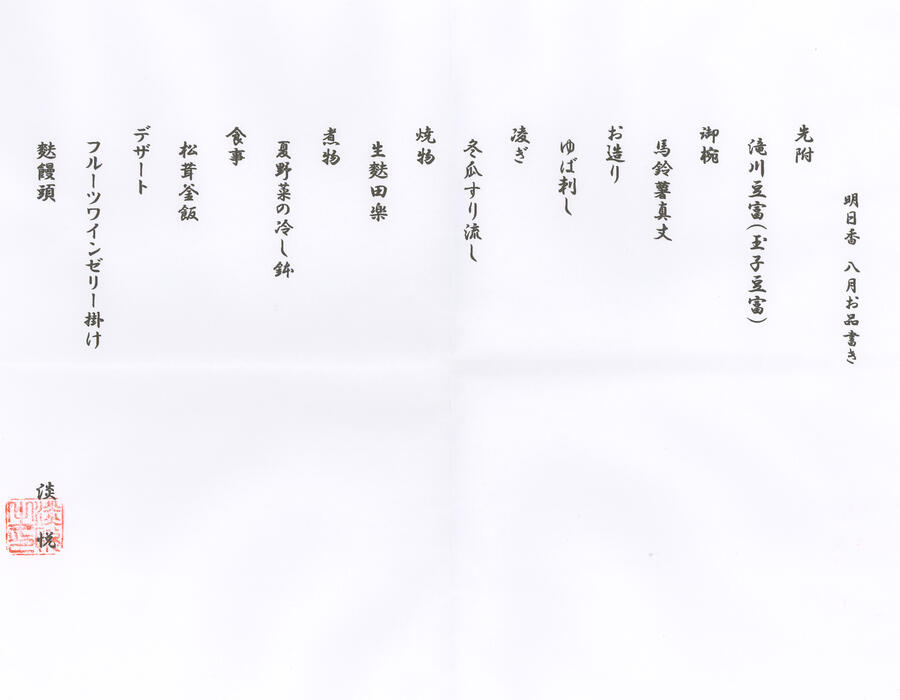 明日香 八月お品書き
先附
滝川豆富(玉子豆富)
御椀
馬鈴薯真丈
お造り
ゆば刺し
凌ぎ
冬瓜すり流し
焼物
生麩田楽
煮物
夏野菜の冷し鉢
食事
松茸釜飯
デザート
フルーツワインゼリー掛け
麩饅頭
淡悦